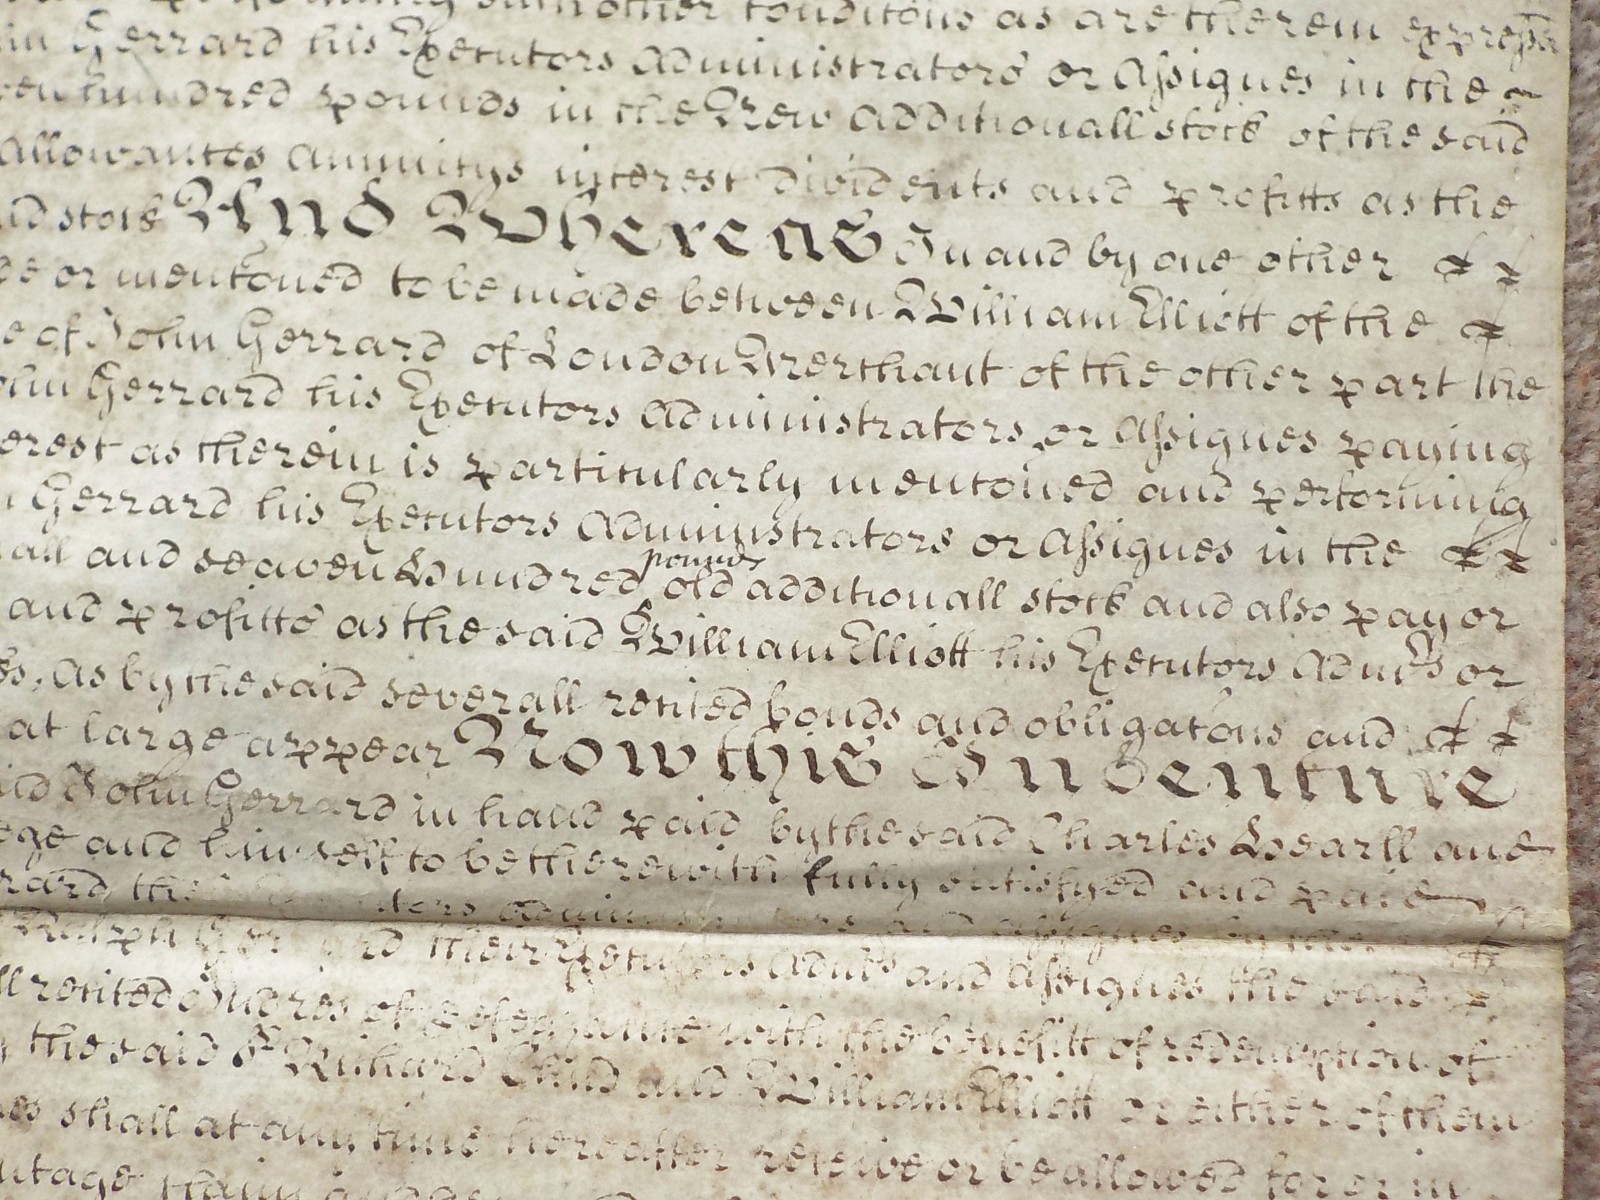 such other Conditons as are therein expressd
Gerrard his Executors Administrators or Assignes in the
hundred pounds in the New Additionall stock of the said
Allowances annuitys interest dividents and profitts as the
stock And Whereas In and by one other
or mentoned to be made between William Elliott of the
of John Gerrard of London Merchant of the other part the
Gerrard his Executors Administrators or Assignes paying
as therein is particularly mentoned and performing
Gerrard his Executors Administrators or Assignes in the
all and seaven Hundred pounds old additionall stock and also pay or
and profitts as the said William Elliott his Executors Admrs or
As by the said severall recited bonds and obligatons and
at large appear Now this Indenture
John Gerrard in hand paid by the said Charles Hearll and
and himself to be therewith fully satisfyed and paid
Administrators and assignes by
Ralph Gerrard their Executors Admrs and Assignes the said
recited Indres of Defeazance with the benefitt of redemption of
the said Sr Richard Child and William Elliott or either of them
shall at any time hereafter receive or be allowed for or in